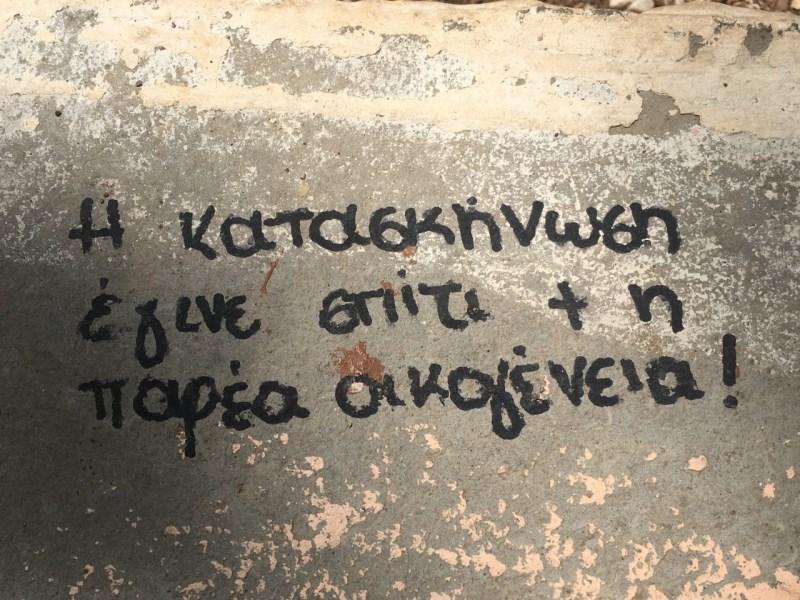 Η κατασκήνωση
έγινε σπίτι + η
παρέα οικογένεια!